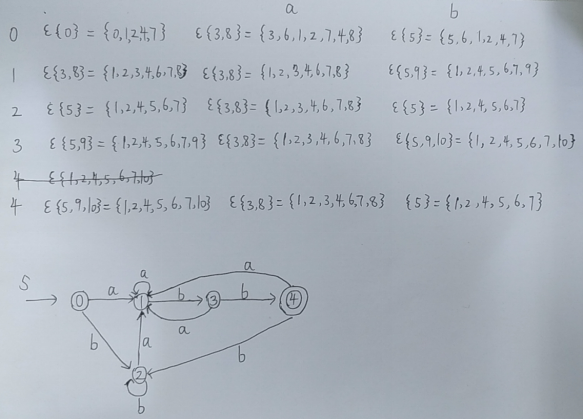 a b
0 ε{0} = {0,1,2,4,7} ε{3,8} = {3,6,1,2,7,4,8} ε{5} = {5,6,1,2,4,7}
1 ε{3,8} = {1,2,3,4,6,7,8} ε{3,8} = {1,2,3,4,6,7,8} ε{5,9} = {1,2,4,5,6,7,9}
2 ε{5} = {1,2,4,5,6,7} ε{3,8} = {1,2,3,4,6,7,8} ε{5} = {1,2,4,5,6,7}
3 ε{5,9} = {1,2,4,5,6,7,9} ε{3,8} = {1,2,3,4,6,7,8} ε{5,9,10} = {1,2,4,5,6,7,10}
4 ε{1,2,4,5,6,7,10}
4 ε{5,9,10} = {1,2,4,5,6,7,10} ε{3,8} = {1,2,3,4,6,7,8} {5} = {1,2,4,5,6,7}
a
a
S 0 a 1 b 3 b 4
a
b a b
2
b